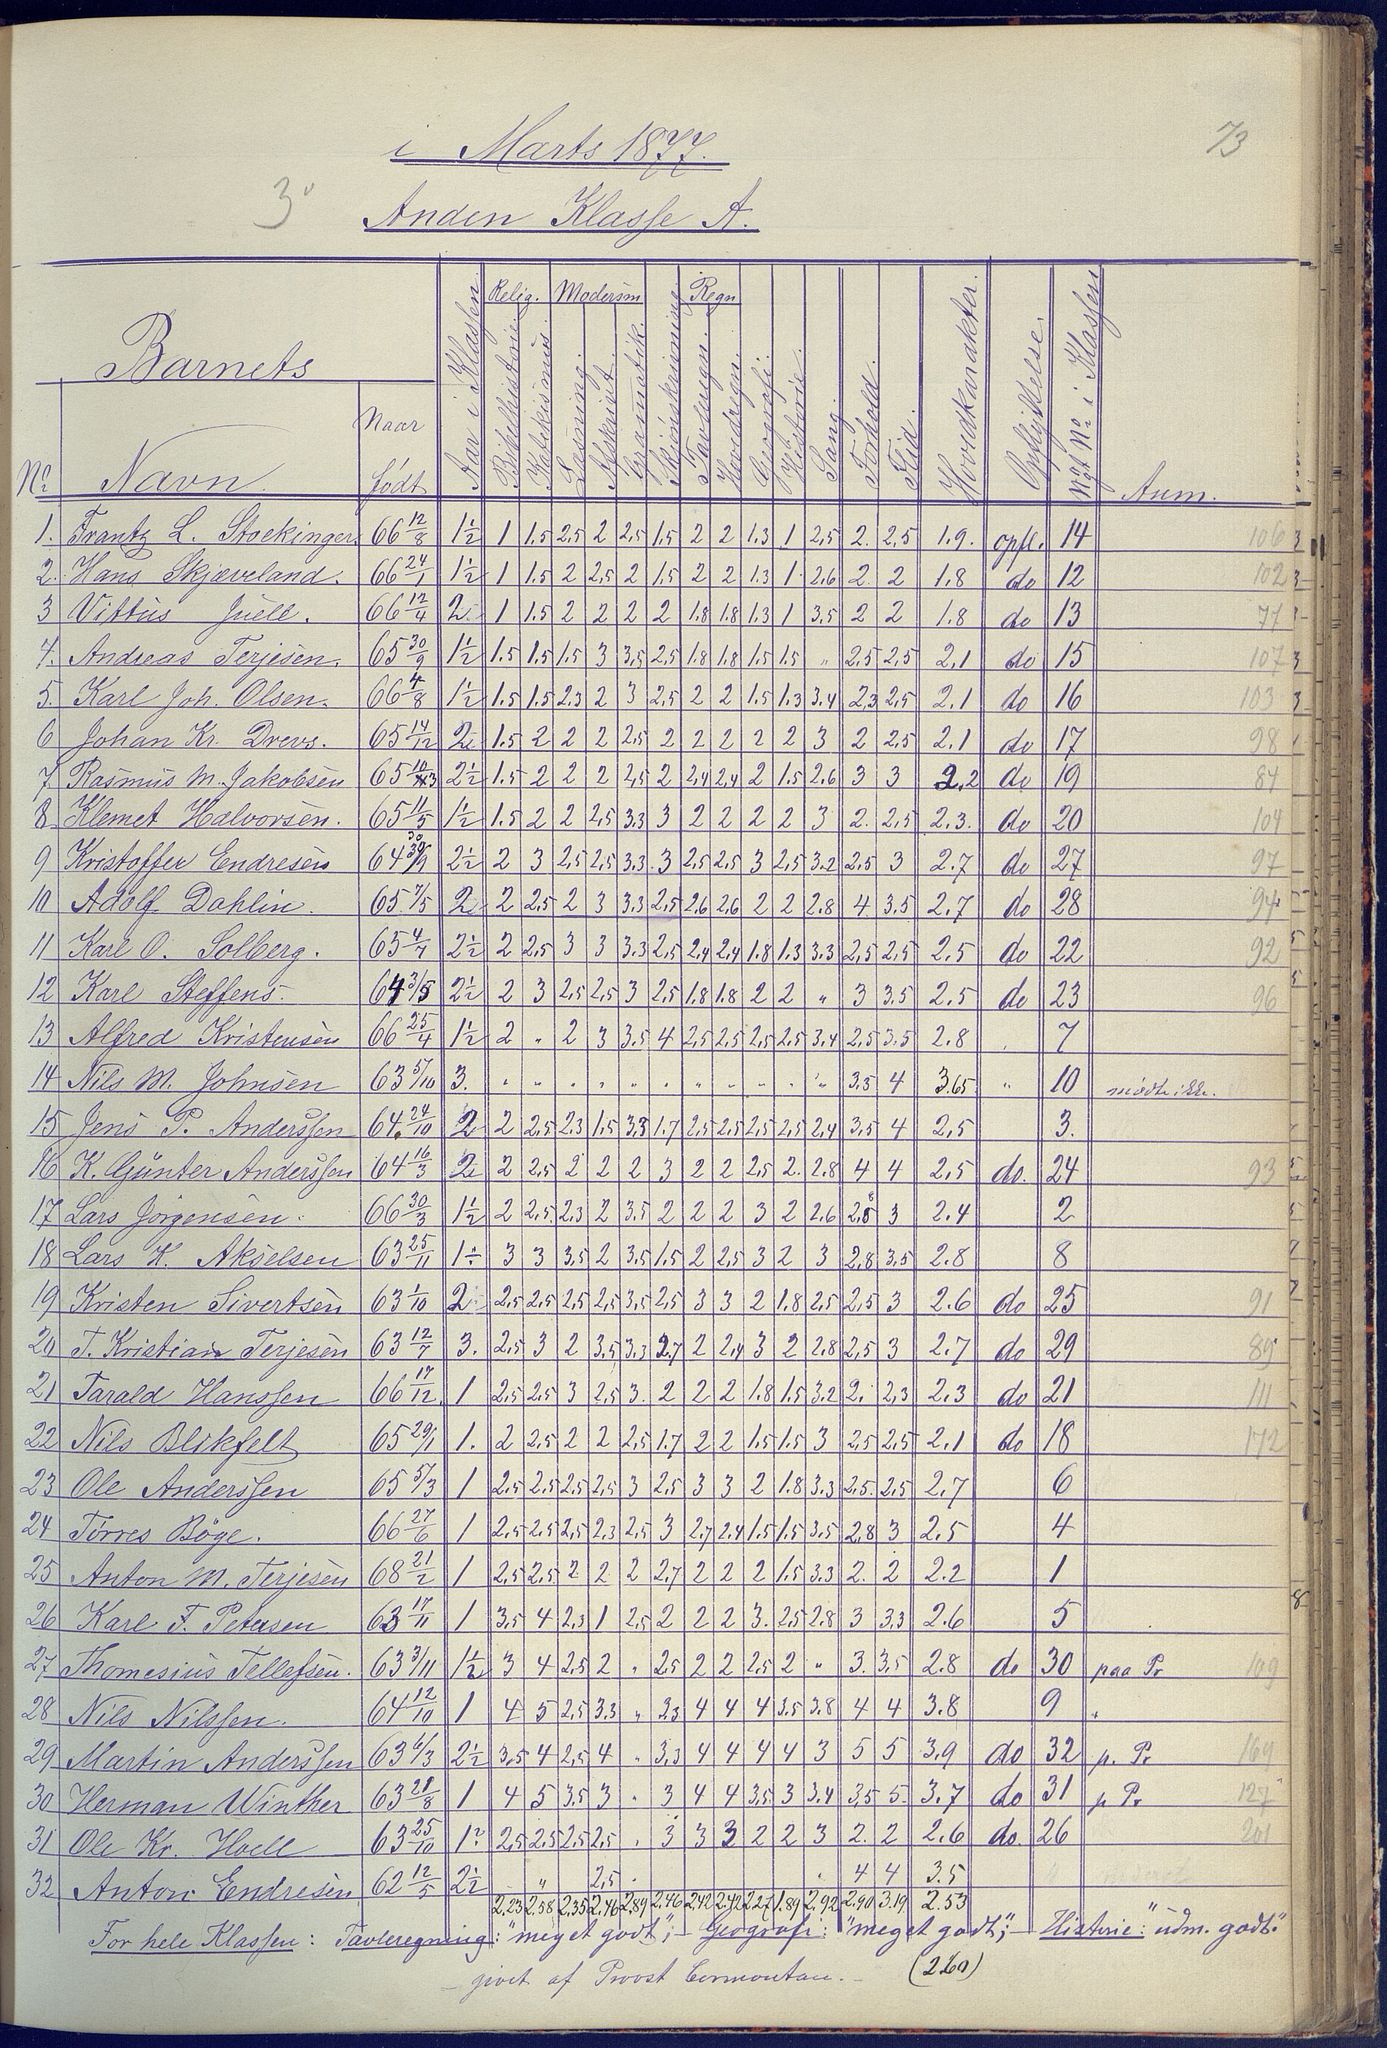 73
i Marts 1877.
3
Anden Klasse A.
Barnets
Nr Navn Naar født Aar i Klassen. Relig. Bibelhistorie. Katekismus. Modersm Læsning. Afskrivt. Gramatik. Skjönskrivning Regn Tavleregn. Hovedregn. Geografi. Historie. Sang. Forhold. Flid. Hovedkarakter. Opflyttelse. Nyt No i Klassen Anm.
1. Frantz L. Stockinger. 66 12/8 1½ 1 1.5 2,5 2 2,5 1.5 2 2 1.3 1 2,5 2. 2,5 1.9. opfl. 14 106
2. Hans Skjæveland. 66 24/1 1½ 1 1.5 2 2,5 2 1.5 2 2 1.3 1. 2.6 2. 2 1.8 do 12 102
3 Vittus Juell. 66 12/4 2. 1 1.5 2 2 2 2 1.8 1.8 1.3 1 3,5 2 2 1.8 do 13 77
4. Andreas Terjesen. 65 30/9 1½ 1.5 1.5 1.5 3 3,5 2,5 1.8 1.8 1.5 1.5 " 2,5 2,5 2,1 do 15 107
5. Karl Joh. Olsen. 66 4/8 1½ 1.5 1.5 2.3 2 3 2,5 2 2 1.5 1.3 3.4 2,3 2,5 2.1 do 16 103
6 Johan Kr. Drevs. 65 14/12 2 1.5 2 2 2 2.5 2 2 2 2 2 3 2 2,5 2.1 do 17 98
7 Rasmus M. Jakobsen 65 10/3 2½ 1.5 2 2 2 2,5 2 2,4 2,4 2 1.5 2.6 3 3 2,2 do 19 84
8 Klemet Halvorsen. 65 11/5 1½ 1.5 2 2 2,5 3.3 3 2 2 2 2 3 2. 2,5 2.3. do 20 104
9 Kristoffer Endresen 64 30/9 2½ 2 3 2,5 2,5 3.3 3 2,5 2,5 3 2,5 3.2 2,5 3 2.7 do 27 97
10 Adolf Dahlin. 65 7/5 2 2 2,5 2 3 3.3 2,5 2.6 2.6 2 2 2.8 4 3.5 2.7 do 28 94
11 Karl O. Solberg. 65 4/7 2½ 2 2,5 3 3 3.3 2,5 2,4 2,4 1.8 1.3 3.3 2,5 2,5 2.5 do 22 92
12 Karl Steffens. 64 3/5 2½ 2 3 2,5 2,5 3 2,5 1.8 1.8 2 2 " 3 3.5 2.5 do 23 96
13 Alfred Kristensen 66 25/4 1½ 2 " 2 3 3.5 4 2,5 2,5 2,5 2,5 3.4 2,5 3.5 2.8 7
14 Nils M. Johnsen 63 5/10 3. " " " " " " " " " " " 3,5 4 3.65 " 10 mødte ikke.
15 Jens P. Anderssen 64. 24/10 2 2 2,5 2.3 1.5 3,3 1.7 2,5 2,5 2,5 2,5 2,4 3,5 4 2,5 3.
16 K. Günter Anderssen 64 16/3 2 2 2,5 2 2 2 3 2 2 2,5 2. 2.8 4 4 2,5 do. 24 93
17 Lars Jörgensen. 66 30/3 1½ 2 2,5 2.3 2 3.5 2 2 2 3 2 2.6 2,8 3 2.4 2
18 Lars K. Akselsen 63 25/11 1 3 3 3,5 2 3,5 1.5 2 2,5 3 2 3 2,8 3,5 2.8 8
19 Kristen Sivertsen 63 1/10 2 2,5 2,5 2,5 2,5 3,5 2,5 3 3 2 1.8 2,5 2,5 3 2.6 do 25 91
20 T. Kristian Terjesen 63 12/7 3. 2,5 3 2 3,5 3.3 2.7 2 2,4 3 2 2.8 2,5 3 2.7 do 29 89
21 Tarald Hanssen 66 17/12 1 2,5 2,5 3 2,5 3. 2 2 2 1.8 1.5 3.2 2. 2,3 2.3 do 21 111
22 Nils Blikfelt 65 29/1 1. 2 2,5 2 2 2,5 1.7 2 2 1.5 1.5 3 2,5 2,5 2.1 do 18 172
23 Ole Anderssen 65 5/3 1 2,5 2,5 2,5 2,5 3 2,5 3 3 2 1.8 3.3 2,5. 2,5 2.7 6
24 Torres Böge. 66 27/6 1 2,5 2,5 2,5 2.3 2,5 3 2,7 2.4 1.5 1.5 3.5 2,8 3 2.5 4
25 Anton M. Terjesen 68 21/2 1 2,5 2,5 2 2 2 2,7 2 2 2 1.5 3.3 2. 2 2.2 1
26 Karl F. Petersen 63 17/11 1 3,5 4 2,3 1 2,5 2 2 2 3. 2,5 2.8 3 3,3 2.6 5
27 Thomesius Tellefsen. 63 3/11 1½ 3 4 2,5 2 " 2,5 2 2 2,5 2 " 3. 3,5 2.8 do 30 paa Pr 109
28 Nils Nilssen. 64 12/10 1 4 5 2,5 3.3 " 2,3 4 4 4 3.5 3.8 4 4 3.8 9 "
29 Martin Anderssen 63 6/3 2½ 3,5 4 2,5 4 " 3,3 4 4 4 4 3 5 5 3.9 do 32 p. Pr 169
30 Herman Winther 63 21/8 1 4 5 3,5 3 " 3 4 4 3,5 3 3.4 3,5 5. 3.7 do 31 p Pr 127
31 Ole Kr. Hoell 63 25/10 1 2,5 2,5 2,5 2,5 . 3 3 3 2 2 3 2. 2 2.6 do. 26 201
32 Anton Endresen 62 12/5 2½ " 2,5 4 4 3.5
2,23 2.58 2,35 2.46 2,89 2.46 2,42 2.42 2.27 1.89 2,92 2.90 3.19 2.53
For hele Klassen: Tavleregning: "meget godt"; — Geografi: "meget godt"; — Historie: "udm. godt."
— givet af Provst —. (2.60)